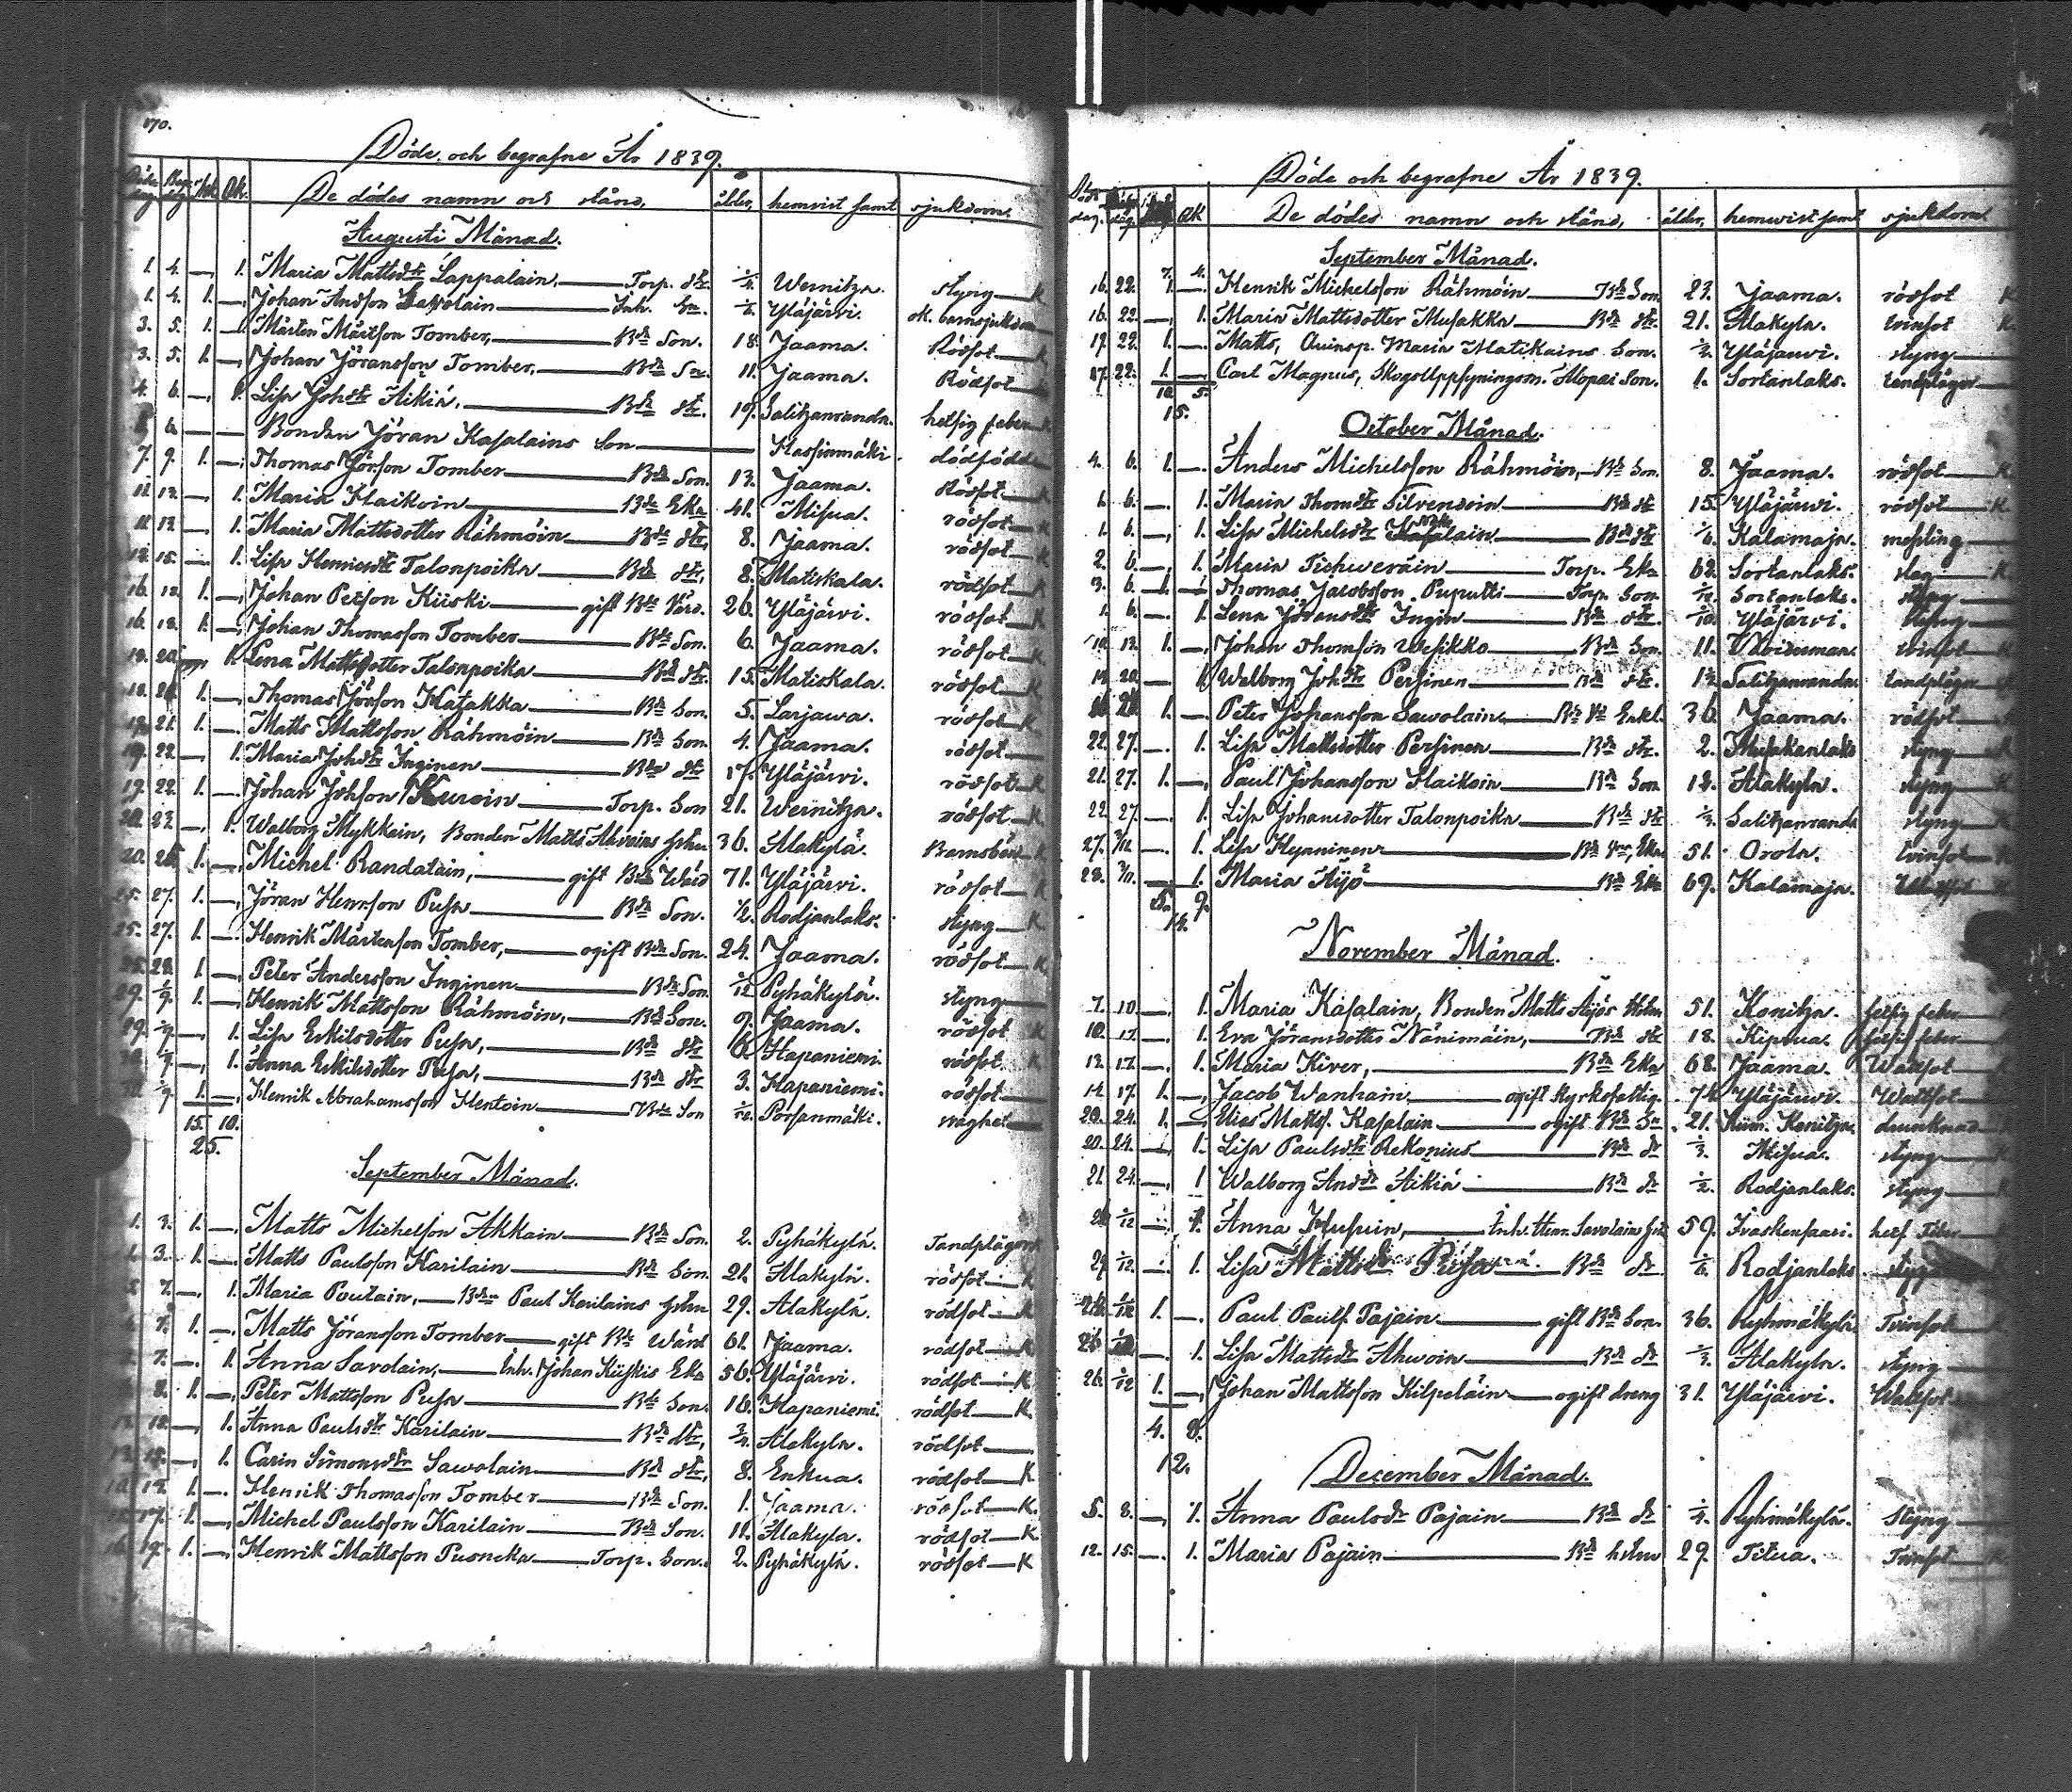 170.
Döde och begrafne År 1839.
De dödes namn och stånd, ålder, hemvist samt sjukdom.
Augusti Månad.
1. 4. — 1. Maria Mattsdtr Lappalain, — Torp. dtr. 1/4 Wernitza. styng — K
1. 4. 1. — Johan Andsson Savolain — Inh. Sn. Yläjärvi. ok. barnsjukdom
3. 5. 1. — Mårten Mårtson Tomber, — Bde Son. 18. Jaama. Rödsot
3. 5. 1. — Johan Jöransson Tomber. — Bde Sn. 11. Jaama. Rödsot
4. 6. — 1. Lisa Johdtr Äikiä. — Bde dtr. 19. Salitzanranda. hetsig feber
6. — — Bonden Jöran Kasalains Son — Hassinmäki. dödfödd
7. 9. 1. — Thomas Jörson Tomber — Bde Son. 13. Jaama. Rödsot
11. 13. — 1. Maria Haikoin — Bde Eka 41. Misua. rödsot — K
11. 13. — 1. Maria Mattsdotter Rähmöin — Bde dtr, 8. Jaama. rödsot — K
13. 15. — 1. Lisa Henricsdtr Talonpoika — Bde dtr, 8. Matiskala. rödsot — K
16. 18. 1. — Johan Peison Kiiski — gift Bde Värd. 26. Yläjärvi. rödsot — K
16. 18. 1. — Johan Thomasson Tomber — Bde Son. 6. Jaama. rödsot — K
18. 20. 1. Lena Mattsdotter Talonpoika — Bde dtr. 15. Matiskala. rödsot — K
1. — Thomas Jörson Hätakka — Bde Son. 5. Larjawa. rödsot — K
19. 21. 1. — Matts Mattsson Rähmöin — Bde Son. 4. Jaama. rödsot
19. 22. — 1. Maria Johdtr Inginen — Bde dtr 17. Yläjärvi. rödsot — K
19. 22. 1. — Johan Johson Kuroin — Torp. Son 21. Wernitza. rödsot — K
20. 23. — 1. Walborg Mykkäin, Bonden Matts Ahvoins hstru 36. Alakylä. Barnsbörd — K
20. 25. 1. — Michel Randatain, — gift Bde Wärd 71. Yläjärvi. rödsot — K
25. 27. 1. — Jöran Henrson Pusa — Bde Son. 1/2. Rodjanlaks. styng — K
25. 27. 1. — Henrik Mårtenson Tomber, — ogift Bde Son. 24. Jaama. rödsot — K
1. — Peter Andersson Inginen — Bde Son. 1/12 Pyhäkylä. styng
29. 1/9. 1. — Henrik Mattsson Rähmöin, — Bde Son. 9. Jaama. rödsot — K
29. 1/9. — 1. Lisa Eskilsdotter Pusa, — Bde dtr 6. Hapaniemi. rödsot — K
— 1. Anna Eskilsdotter Pusa, — Bde dtr 3. Hapaniemi. rödsot
1. — Henrik Abrahamsson Hentoin — Bde Son Porsanmäki. svaghet
15. 10.
25.
September Månad.
1. 3. 1. — Matts Michelson Akkain — Bde Son. 2. Pyhäkylä. Tandplågor
1. 3. 1. — Matts Paulsson Karilain — Bde Son. 21. Alakylä. rödsot — K
5. 7. — 1. Maria Poutain, — Bden Paul Karilains hstru 29. Alakylä. rödsot — K
1. — Matts Jöransson Tomber — gift Bde Wärd 61. Jaama. rödsot — K
7. — 1. Anna Savolain, — Inh. Johan Kiiskis Eka 56. Yläjärvi. rödsot — K
8. 1. — Peter Mattsson Pusa — Bde Son. 16. Hapaniemi. rödsot — K
— 1. Anna Paulsdtr Karilain — Bde dtr, 3/4. Alakylä. rödsot
— 1. Carin Simonsdtr Sawolain — Bde dtr, 8. Enkua. rödsot — K
1. — Henrik Thomasson Tomber — Bde Son. 1. Jaama. rödsot — K
1. — Michel Paulsson Karilain — Bde Son. 11. Alakyla. rödsot — K
1. — Henrik Mattsson Pusneka — Torp. Son. 2. Pyhäkylä. rödsot — K
Döde och begrafne År 1839.
De dödes namn och stånd, ålder, hemvist samt sjukdom
September Månad.
16. 22. 1. — Henrik Michelsson Rähmöin — Bde Son 23. Jaama. rödsot K
16. 22. — 1. Maria Mattsdotter Musakka — Bde dtr. 21. Alakyla. tvinsot K.
17. 22. 1. — Matts, Qvinsp. Maria Matikains Son. 1/2. Yläjärvi. styng
17. 22. 1. — Carl Magnus, Skogsuppsyningsm. Alopæi Son. 1. Sortanlaks. tandplågor
10. 5.
15.
October Månad.
4. 6. 1. — Anders Michelsson Rähmöin, — Bde Son. 8. Jaama. rödsot — K
6. — 1. Maria Thomdtr Silvendoin — Bde dtr 15. Yläjärvi. rödsot — K.
1. 6. — 1. Lisa Michelsdtr — Bde dtr 1/6. Kalamaja. mesling
2. 6. — 1. Maria Tichweräin — Torp. Eka 62. Sortanlaks. slag — K.
3. 6. 1. — Thomas Jacobsson Puputti — Torp. Son Sortanlaks. styng
1. 6. — 1. Lena Jöransdtr Ingin — Bde dtr. Yläjärvi. styng
10. 13. 1. — Johan Thomson Wesikko — Bde Son. 11. tvinsot — K
20. — 1. Walborg Johdtr Persinen — Bde dtr. 1 1/2. Salitzanranda. tandplågor
1. — Peter Johansson Sawolain — Bde Enkl. 36. Jaama. rödsot
22. 27. — 1. Lisa Mattsdotter Persinen — Bde dtr. 2. Musakanlaks styng
21. 27. 1. — Paul Johansson Haikoin — Bde Son 12. Alakylä. styng — K
22. 27. — 1. Lisa Johansdotter Talonpoika — Bde dtr 1/3. Salitzanranda styng
27. 3/11. — 1. Lisa Hynninen — 51. Orola. tvinsot
28. 3/11. — 1. Maria Äijö — Bde Eka 69. Kalamaja.
5. 9.
14.
November Månad.
7. 10. — 1. Maria Kasalain, Bonden Matts Äijös hstru 51. Konitza. hetsig feber
10. 17. — 1. Eva Jöransdotter Nänimäin, — Bde dtr 18. Kipsua. hetsig feber
13. 17. — 1. Maria Kiver, — Bde Eka 68. Jaama. Wattsot
14. 17. 1. — Jacob Wanhain — ogift Kyrkofattig. 74. Yläjärvi. Wattsot
20. 24. 1. — Elias Matts. Kasalain — ogift Bde Sn. 21. Kiim. Konitza. drunknad
20. 24. — 1. Lisa Paulsdtr Rekonius — Bde dr 1/3. Misua. styng
21. 24. — 1 Walborg Anddr Äikiä — Bde dr 1/2. Rodjanlaks. styng
1/12 — 1. Anna — Inh. Henr. Savolains hst 59. Iraskansaari. hets Feber
29 1/12. — 1. Lisa Mattsdr Pusa — Bde dr 1/6. Rodjanlaks. styng
1. — Paul Paulss. Pajain — gift Bde Son. 36. Ryhmäkylä. Tvinsot
— 1. Lisa Mattsdr Ahwoin — Bde dr 1/3. Alakyla. styng
26. 1/12 1. — Johan Mattsson Kilpeläin — ogift dreng 31. Yläjärvi. Wattsot
4. 8.
12.
December Månad.
5. 8. — 1. Anna Paulsdr Pajain — Bde dr 1/4. Ryhmäkylä. Styng
12. 15. — 1. Maria Pajain — Bde hstru 29. Titua. Tvinsot